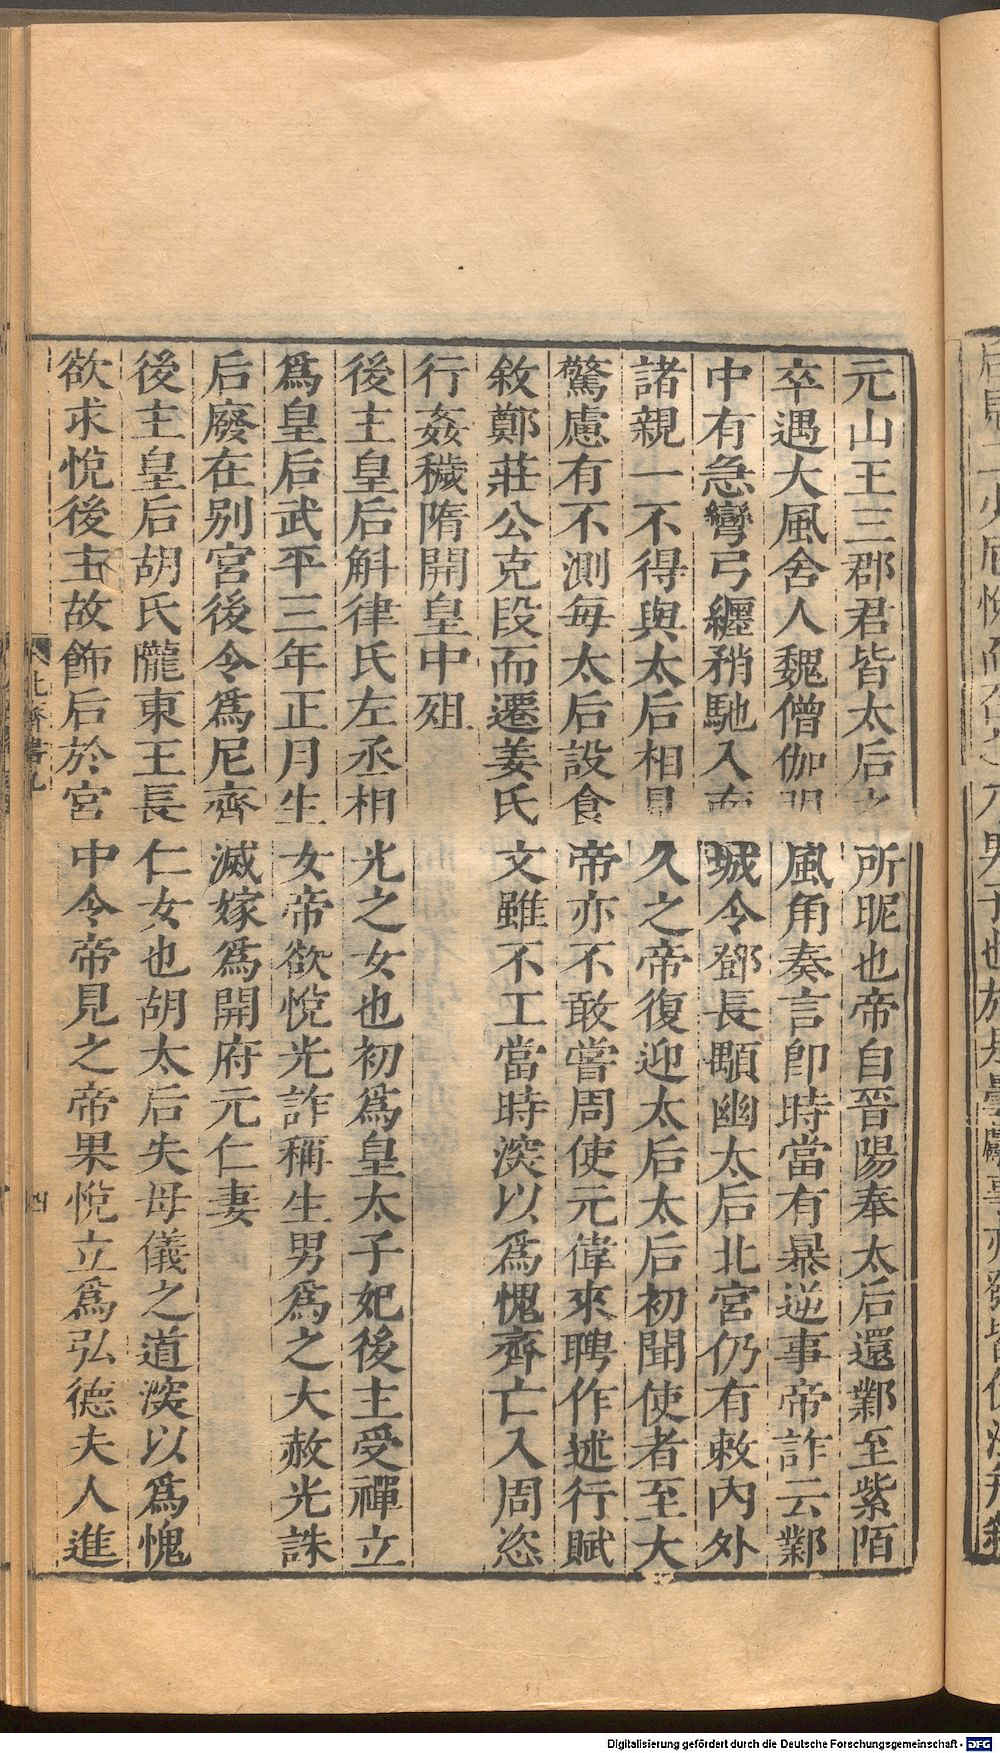 元山王三郡君皆太后之所昵也帝自晉陽奉太后還鄴至紫陌
卒遇大風舍人魏僧伽明風角奏言卽時當有暴逆事帝詐云鄴
中有急彎弓纏矟馳入南城令鄧長顒幽太后北宮仍有敕內外
諸親一不得與太后相見久之帝復迎太后太后初聞使者至大
驚慮有不測每太后設食帝亦不敢嘗周使元偉來聘作述行賦
敘鄭莊公克段而遷姜氏文雖不工當時深以爲愧齊亡入周恣
行姦穢隋開皇中殂
後主皇后斛律氏左丞相光之女也初爲皇太子妃後主受禪立
爲皇后武平三年正月生女帝欲悅光詐稱生男爲之大赦光誅
后廢在別宮後令爲尼齊滅嫁爲開府元仁妻
後主皇后胡氏隴東王長仁女也胡太后失母儀之道深以爲愧
欲求悅後主故飾后於宮中令帝見之帝果悅立爲弘德夫人進
北齊書九
四
Digitalisierung gefördert durch die Deutsche Forschungsgemeinschaft - DFG